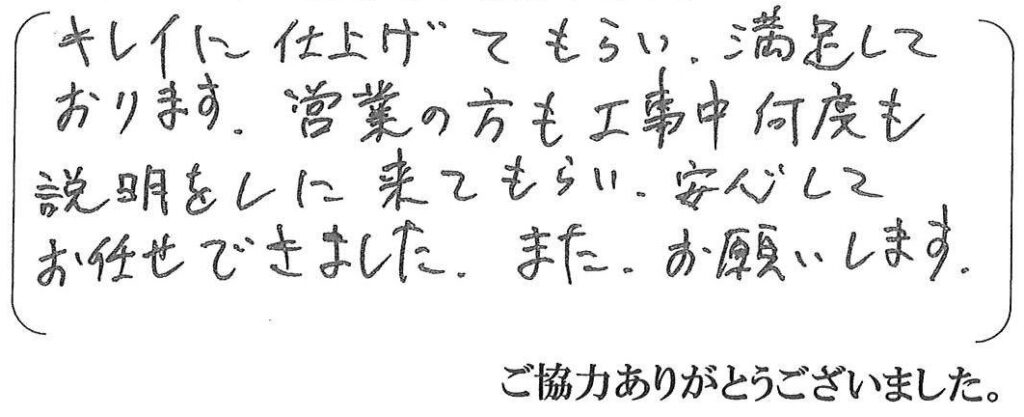 キレイに仕上げてもらい、満足して
おります。営業の方も工事中何度も
説明をしに来てもらい、安心して
お任せできました。また、お願いします。
ご協力ありがとうございました。